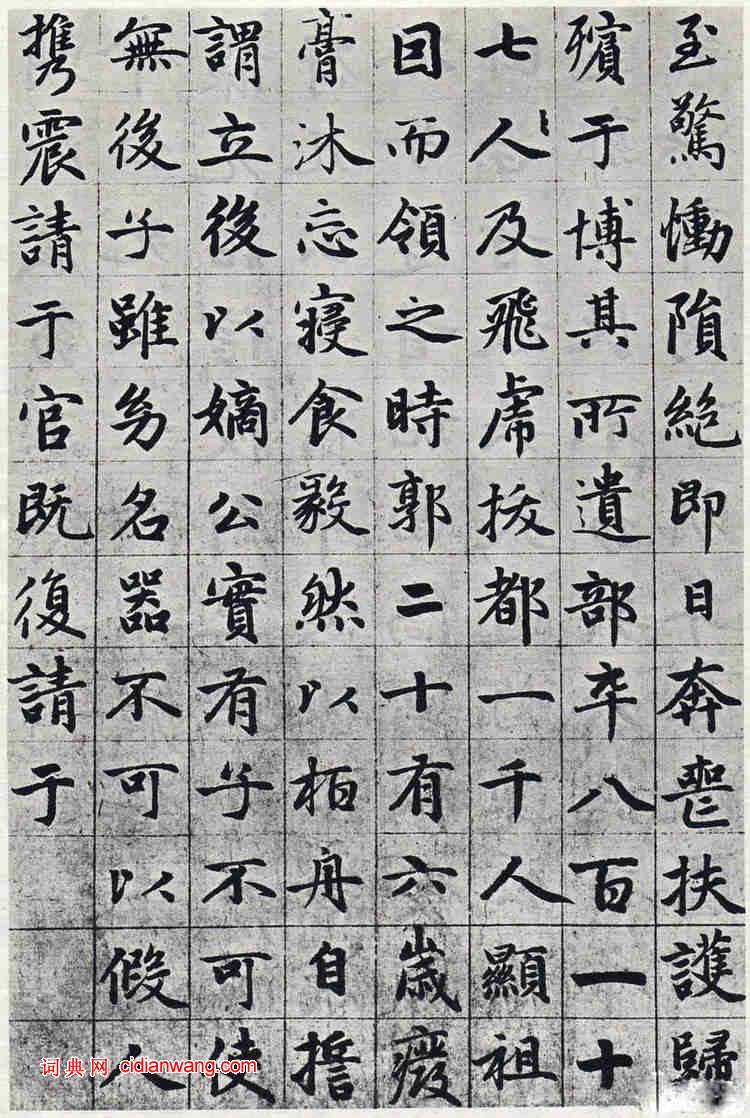 至驚慟隕絶即日奔喪扶護歸
殯于博其所遺部卒八百一十
七人及飛虎拔都一千人顯祖
囙而領之時郭二十有六歲癈
膏沐忘寝食毅然以栢舟自誓
謂立後以嫡公實有子不可使
無後子雖幼名器不可以假人
携震請于官既復請于
词典网 cidianwang.com